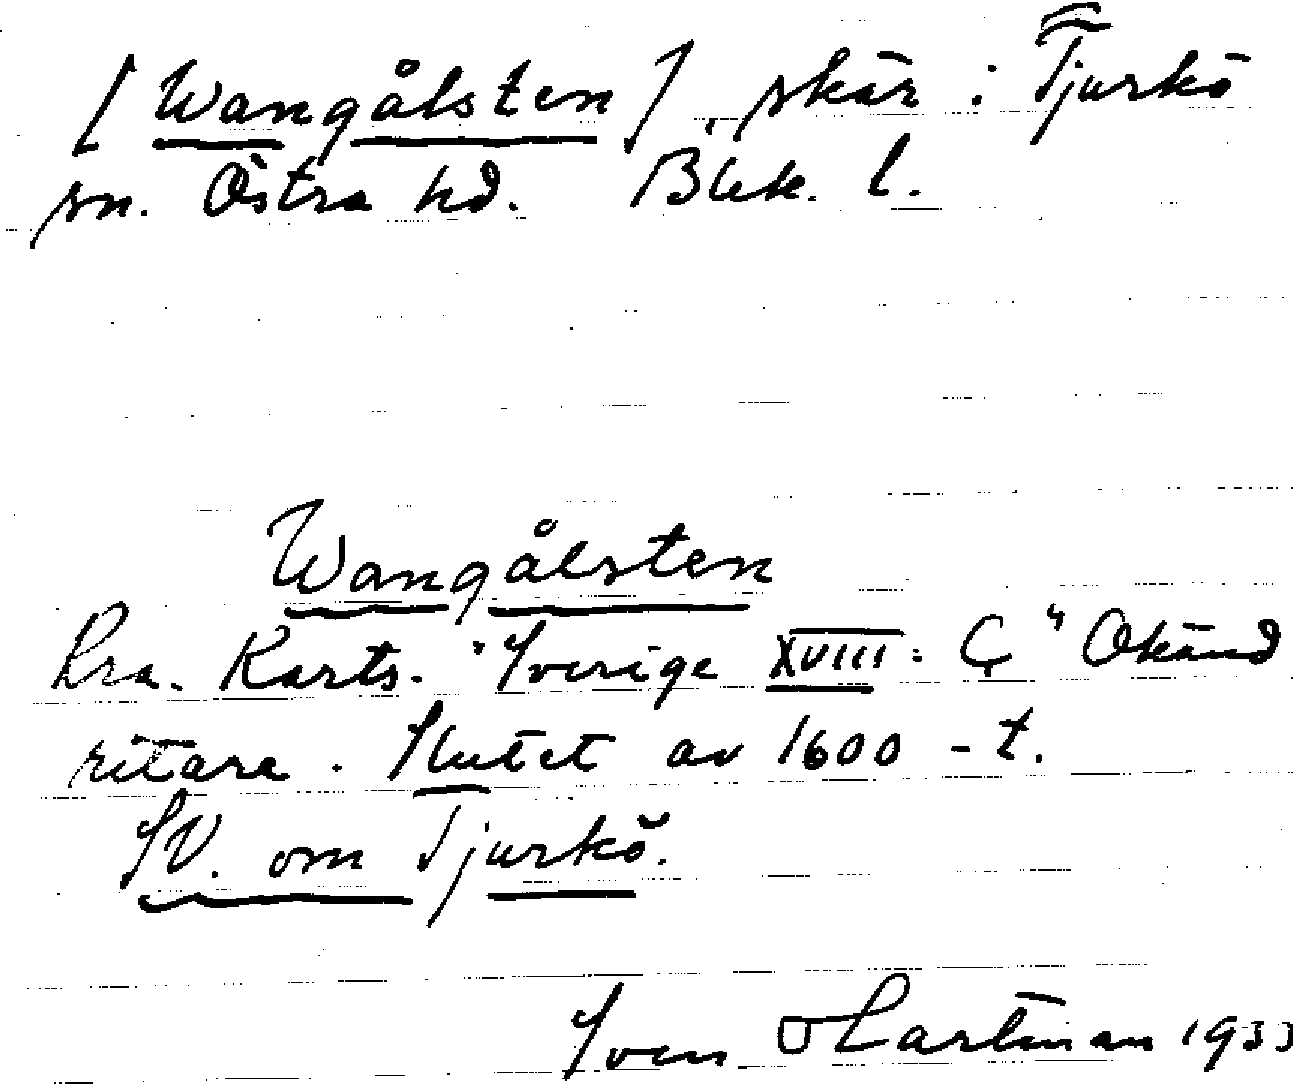 [Wangålsten], skär i Tjurkö
sn. Östra hd. Blek. l.
Wangålsten
Kra. Karts. "Sverige XVIII: C" Okänd
ritare. Slutet av 1600-t.
SV. om Tjurkö.
Sven Hartman 1933